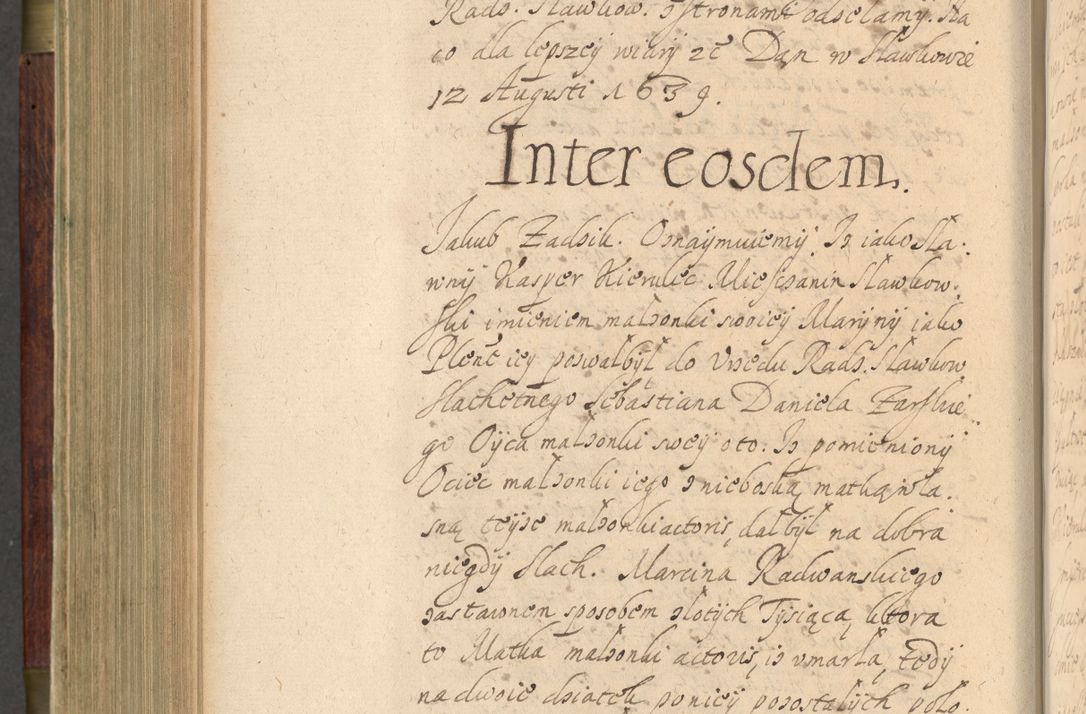 Rads. Sławkow. z stronami odsełamy. Na
co dla lepszey wiary zc Dan w Sławkowie
12 Augusti 1639.
Inter eosdem.
Jakub Zadzik. Oznaymuiemy Iz iako Sła.
wny Kasper Kierulec Miesczanin Sławkow.
ski imieniem małzonki swoiey Maryny iako
Plenc iey pozwałbył do Vrzedu Rads. Sławkow.
Slachetnego Sebastiana Daniela Zarskie
go Oyca małzonki swey oto. Iz pomieniony
Ociec małzonki iego z nieboską matką wła.
sną teyze małzonki actoris, dał był na dobra
niegdy Slach. Marcina Radwanskiego
zastawnem sposobem złotych Tysiąca, ktora
to Matka małzonki actoris, iz vmarła, tedy
na dwoie dziatek poniey pozostałych poło.